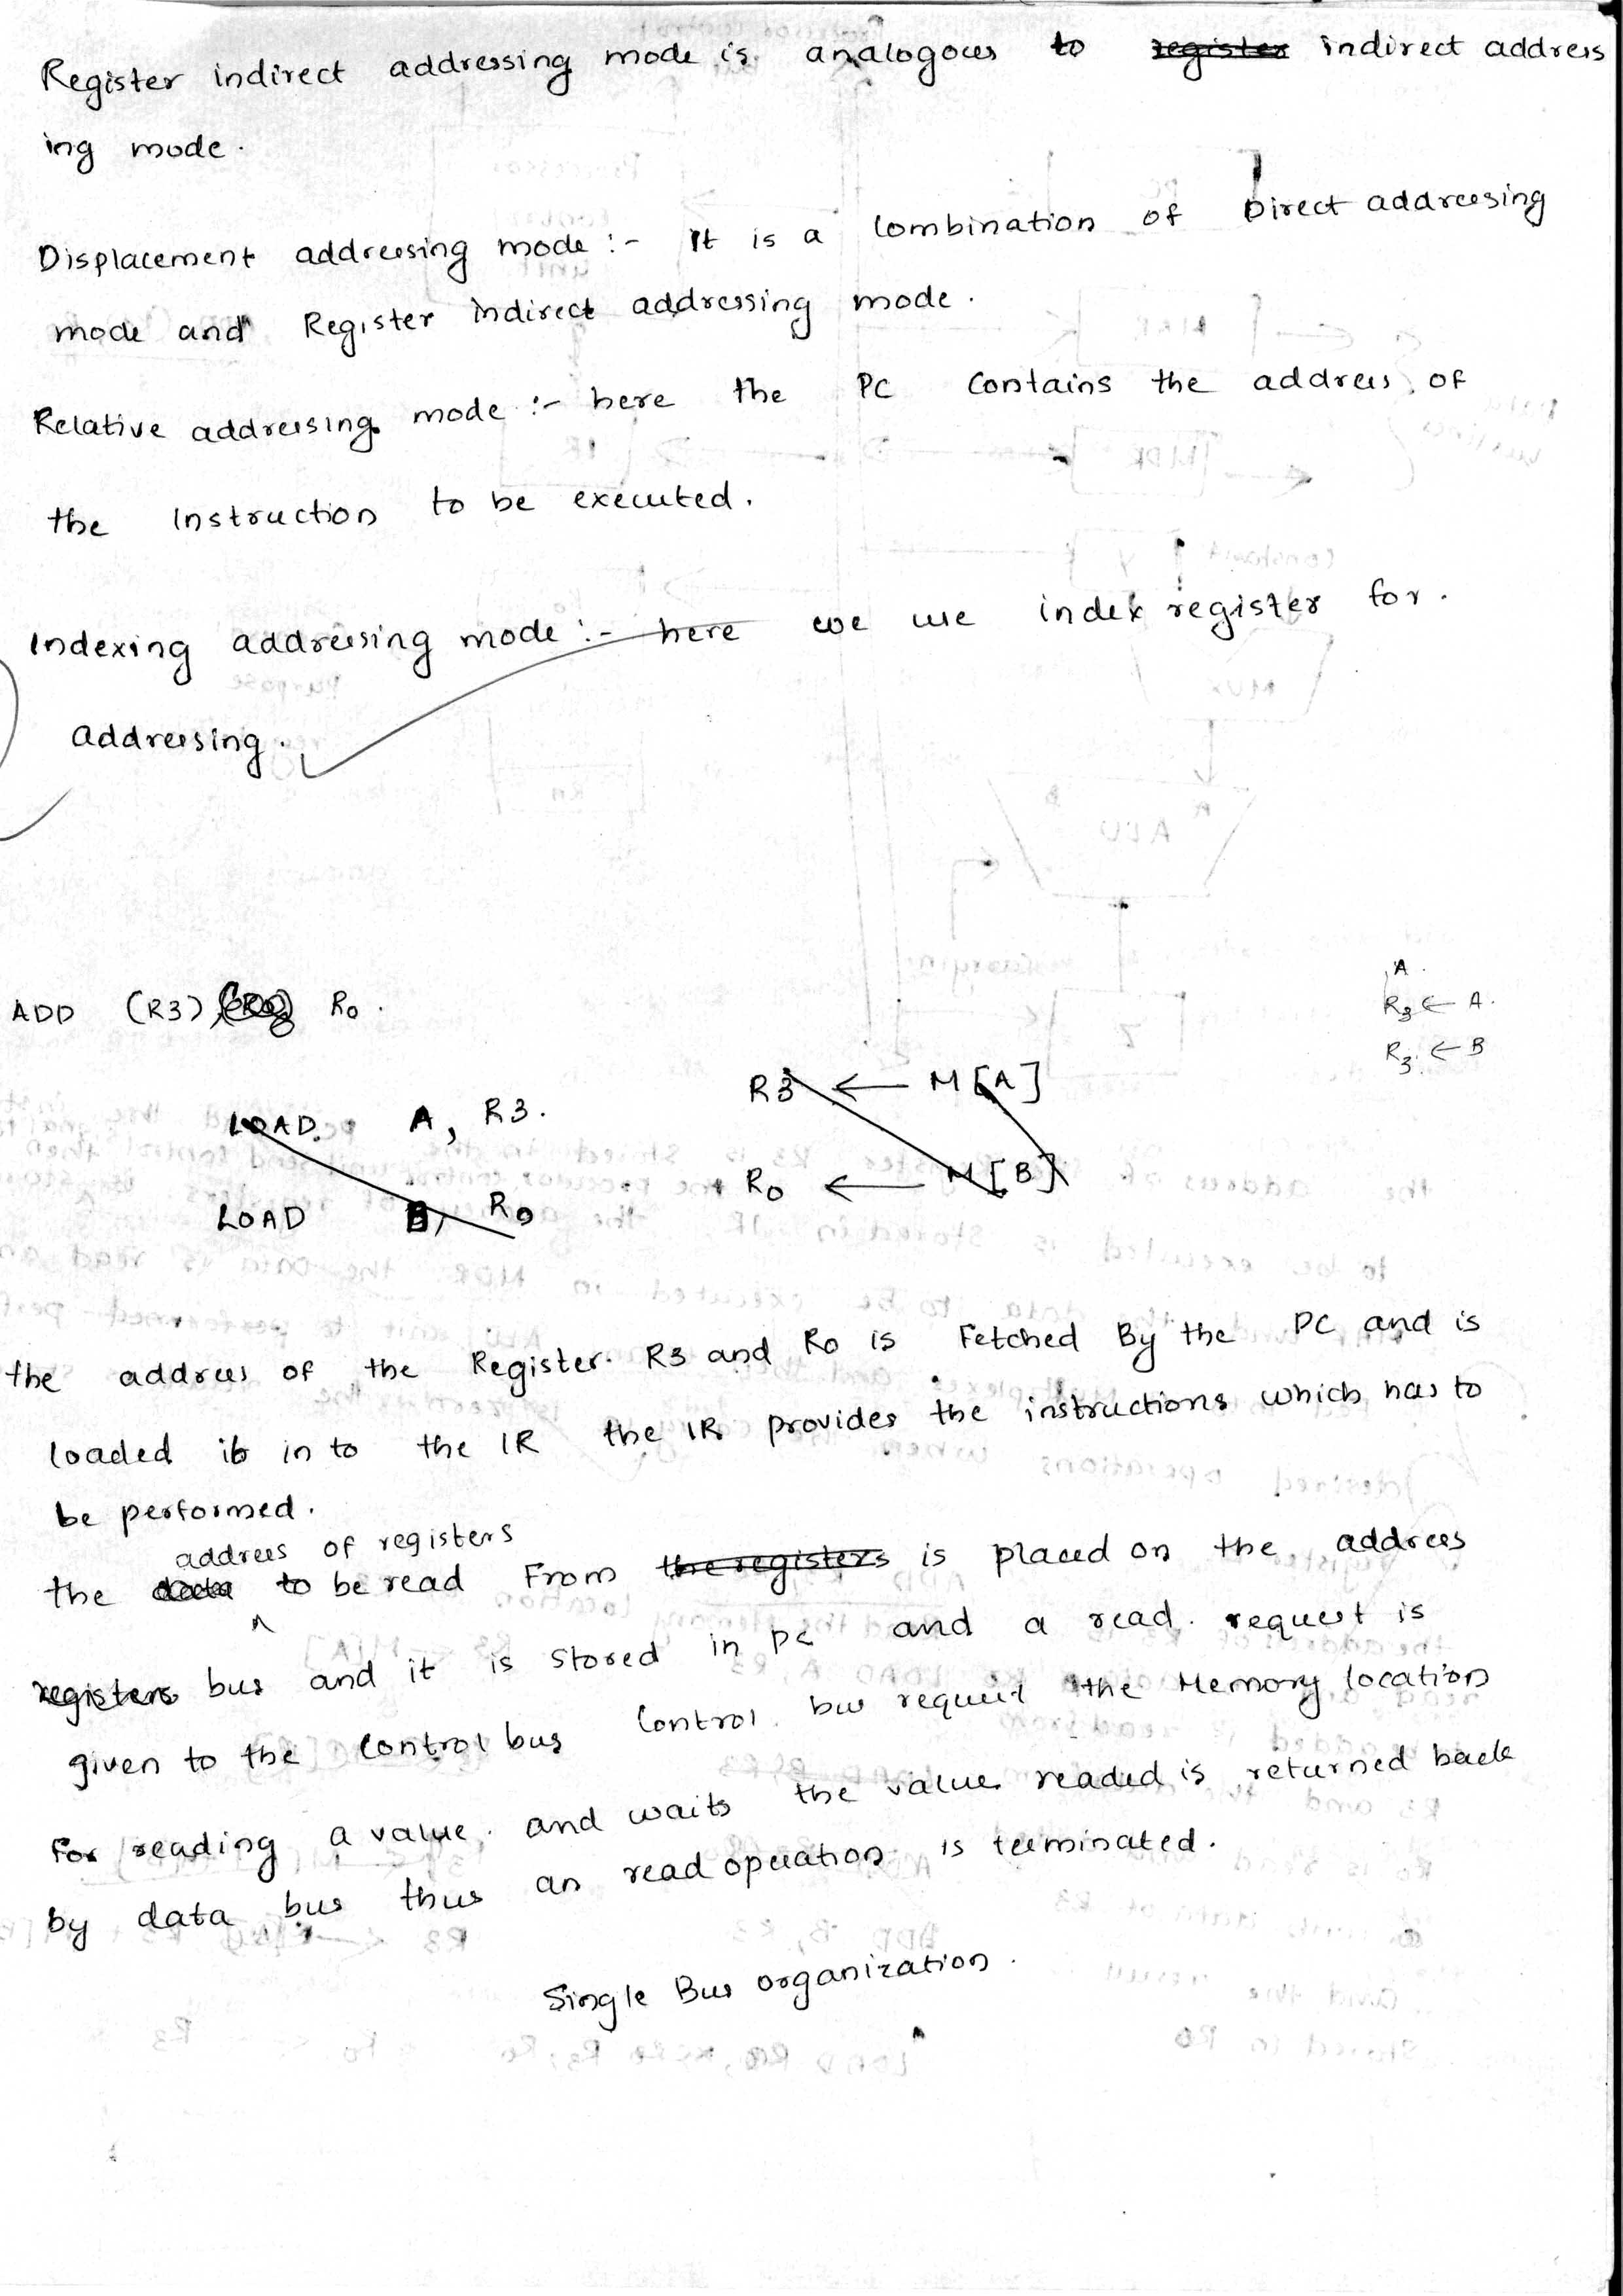 Register indirect addressing mode is analogous to register indirect address
ing mode.
Displacement addressing mode :- It is a combination of Direct addressing
mode and Register indirect addressing mode.
Relative addressing mode :- here the PC contains the address of
the Instruction to be executed.
Indexing addressing mode :- here we use index register for.
addressing.
A.
ADD (R3), R0.
R3 ← A.
R3 ← B
R3 ← M[A]
LOAD A, R3.
R0 ← M[B]
LOAD B, R0
the address of the Register R3 and R0 is Fetched By the PC and is
loaded it in to the IR the IR provides the instructions which has to
be performed.
address of registers
the data to be read From the registers is placed on the address
registers bus and it is stored in pc and a read request is
given to the control bus Control bus request the Memory location
for reading a value. and waits the value readed is returned back
by data bus thus an read operation is terminated.
Single Bus organization.